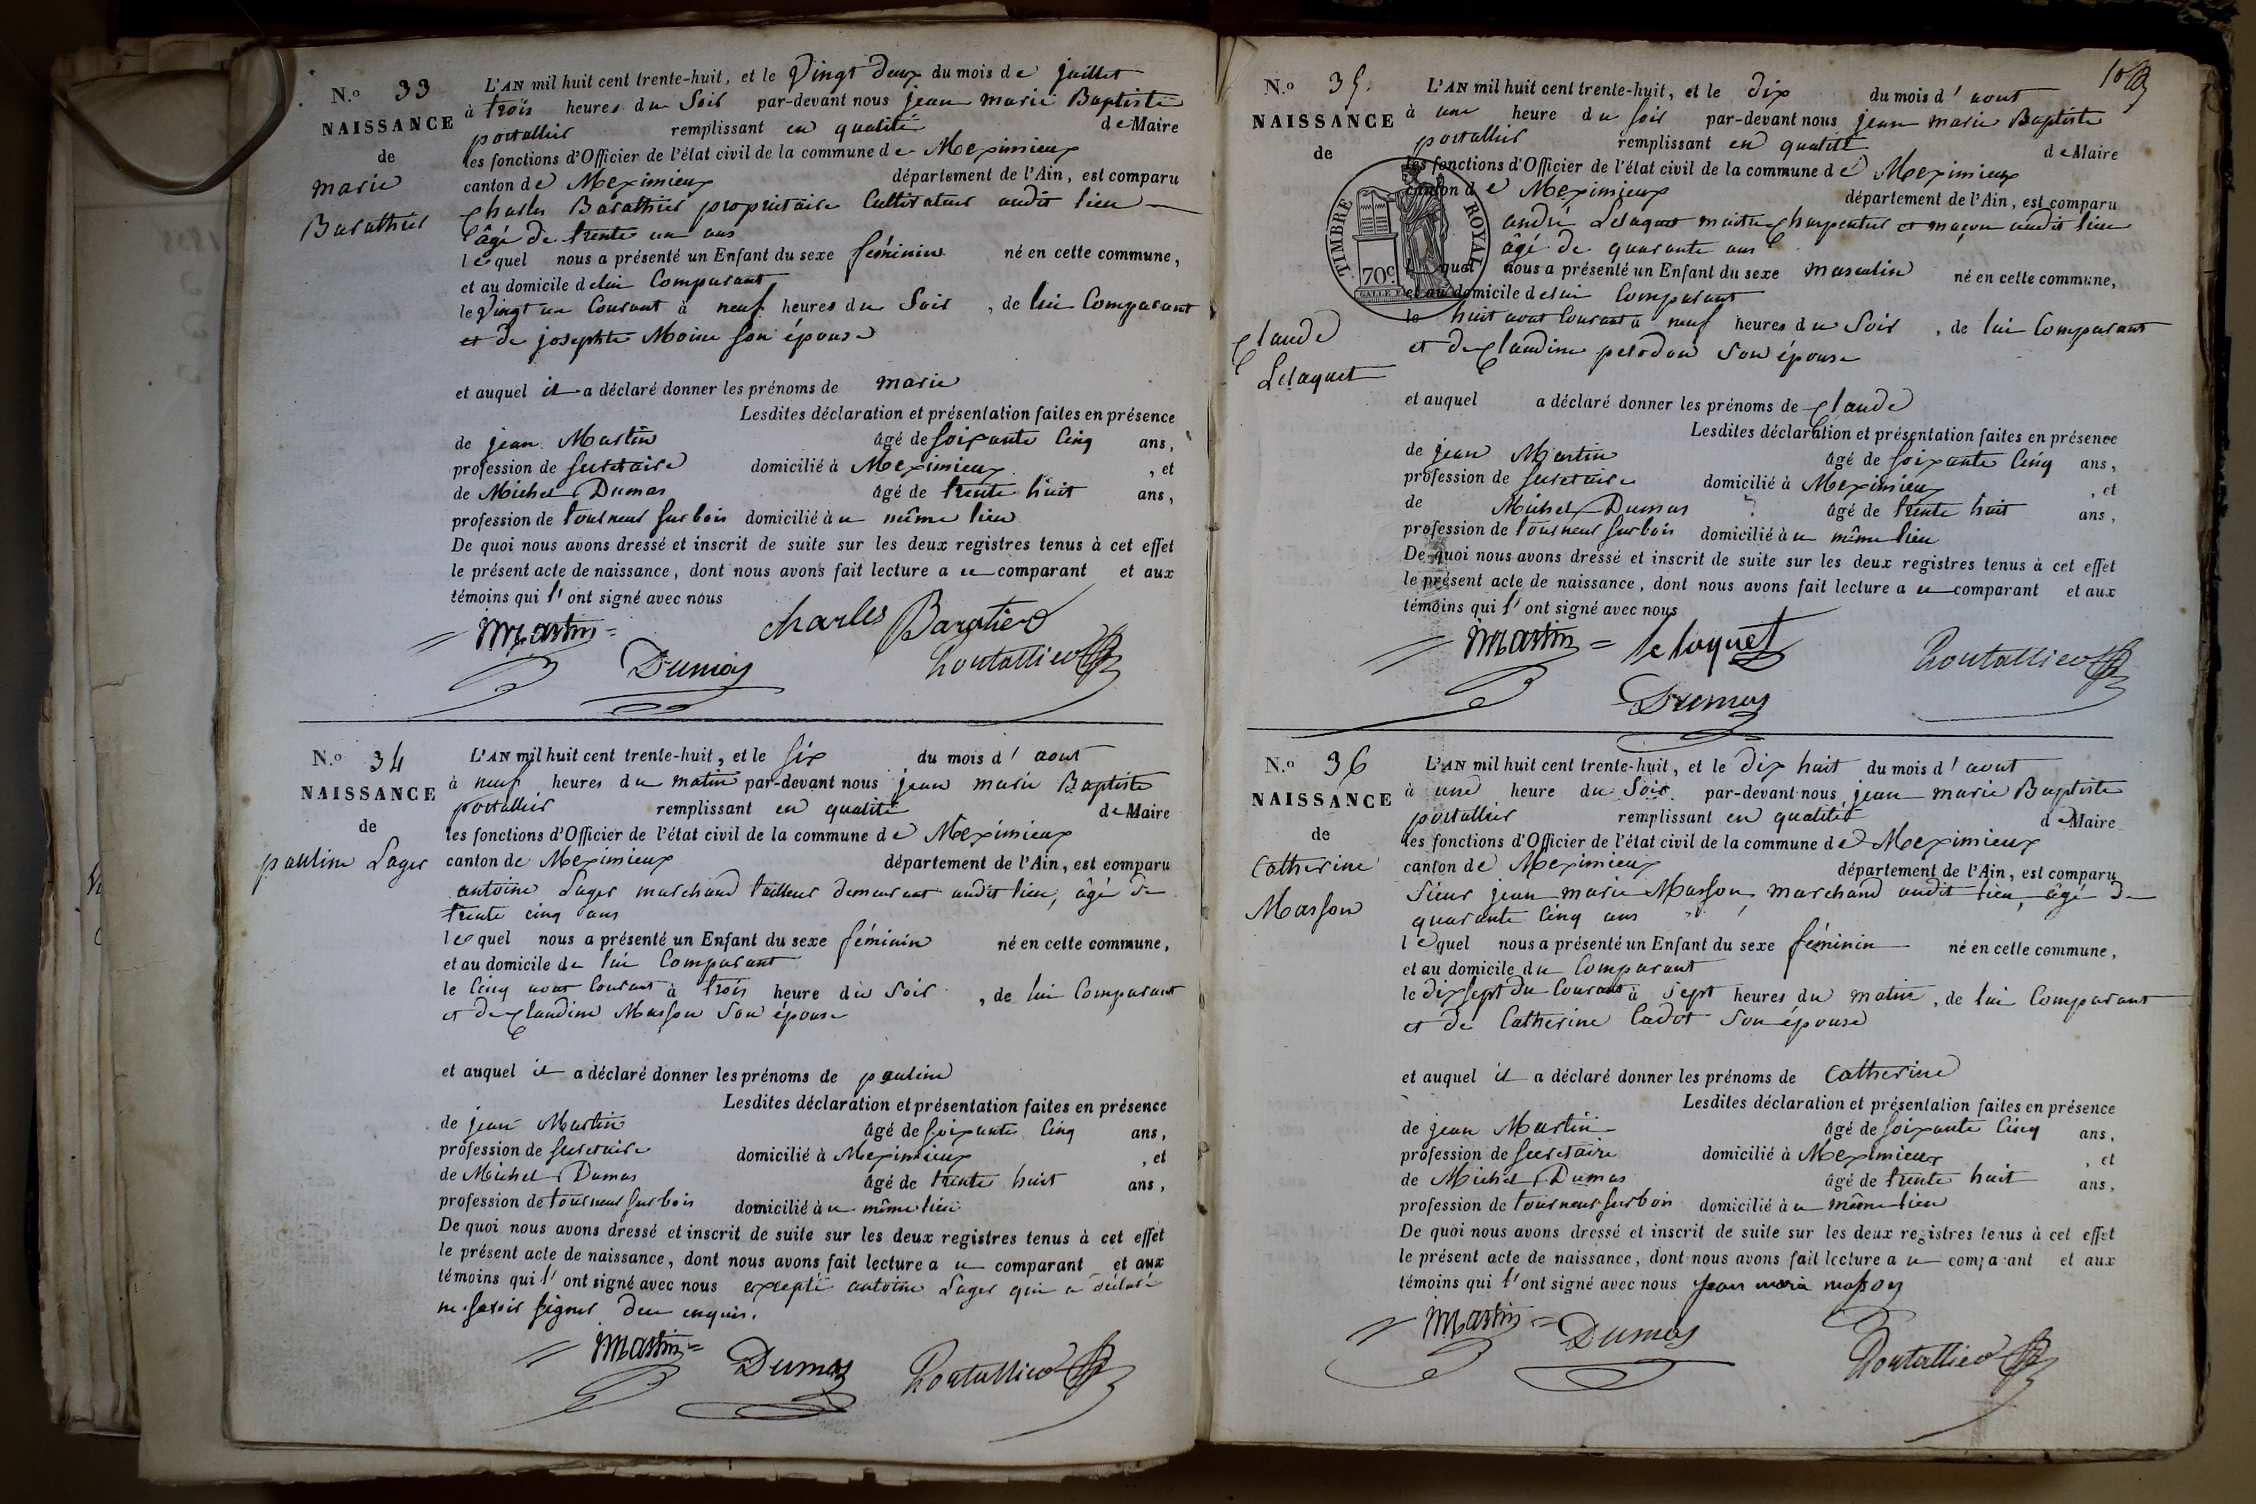 N.º 33
NAISSANCE
de
marie
Barathier
L'AN mil huit cent trente-huit, et le Vingt deux du mois de juillet
à trois heures du Soir par-devant nous jean marie Baptiste
portallier remplissant en qualité de Maire
les fonctions d'Officier de l'état civil de la commune de Meximieux
canton de Meximieux département de l'Ain, est comparu
Charles Barathier proprietaire Cultivateur audit lieu
âgé de trente un ans
lequel nous a présenté un Enfant du sexe féminin né en cette commune,
et au domicile de lui Comparant
le Vingt un Courant à neuf heures du Soir, de lui Comparant
et de josephte Moine son épouse
et auquel il a déclaré donner les prénoms de marie
Lesdites déclaration et présentation faites en présence
de jean Martin âgé de soixante Cinq ans,
profession de secretaire domicilié à Meximieux, et
de Michel Dumas âgé de trente huit ans,
profession de tourneur sur bois domicilié à u même lieu
De quoi nous avons dressé et inscrit de suite sur les deux registres tenus à cet effet
le présent acte de naissance, dont nous avons fait lecture a u comparant et aux
témoins qui l'ont signé avec nous
Martin Charles Baratier
Dumas Portallier
N.º 34
NAISSANCE
de
pauline Lager
L'AN mil huit cent trente-huit, et le six du mois d'aout
à neuf heures du matin par-devant nous jean marie Baptiste
portallier remplissant en qualité de Maire
les fonctions d'Officier de l'état civil de la commune de Meximieux
canton de Meximieux département de l'Ain, est comparu
antoine Lager marchand tailleur demeurant audit lieu, âgé de
trente cinq ans
lequel nous a présenté un Enfant du sexe féminin né en cette commune,
et au domicile de lui Comparant
le Cinq aout Courant à trois heure du Soir, de lui Comparant
et de Claudine Masson Son épouse
et auquel il a déclaré donner les prénoms de pauline
Lesdites déclaration et présentation faites en présence
de jean Martin âgé de soixante Cinq ans,
profession de secretaire domicilié à Meximieux, et
de Michel Dumas âgé de trente huit ans,
profession de tourneur sur bois domicilié à u même lieu
De quoi nous avons dressé et inscrit de suite sur les deux registres tenus à cet effet
le présent acte de naissance, dont nous avons fait lecture a u comparant et aux
témoins qui l'ont signé avec nous excepté antoine Lager qui a déclaré
ne savoir signer de ce enquis.
Martin Dumas Portallier
10
N.º 35.
NAISSANCE
de
Claude
Lelaquet
TIMBRE ROYAL
70c
L'AN mil huit cent trente-huit, et le dix du mois d'aout
à une heure du soir par-devant nous jean marie Baptiste
portallier remplissant en qualité de Maire
les fonctions d'Officier de l'état civil de la commune de Meximieux
canton de Meximieux département de l'Ain, est comparu
andré Lelaquet maitre Charpentier et maçon audit lieu
âgé de quarante ans
lequel nous a présenté un Enfant du sexe masculin né en cette commune,
et au domicile de lui Comparant
le huit aout Courant à neuf heures du Soir, de lui Comparant
et de Claudine perodon Son épouse
et auquel a déclaré donner les prénoms de Claude
Lesdites déclaration et présentation faites en présence
de jean Martin âgé de soixante Cinq ans,
profession de secretaire domicilié à Meximieux, et
de Michel Dumas âgé de trente huit ans,
profession de tourneur sur bois domicilié à u même lieu
De quoi nous avons dressé et inscrit de suite sur les deux registres tenus à cet effet
le présent acte de naissance, dont nous avons fait lecture a u comparant et aux
témoins qui l'ont signé avec nous
Martin le laquet Portallier
Dumas
N.º 36
NAISSANCE
de
Catherine
Masson
L'AN mil huit cent trente-huit, et le dix huit du mois d'aout
à une heure du Soir par-devant nous jean marie Baptiste
portallier remplissant en qualité de Maire
les fonctions d'Officier de l'état civil de la commune de Meximieux
canton de Meximieux département de l'Ain, est comparu
Sieur jean marie Masson marchand audit lieu, âgé de
quarante Cinq ans
lequel nous a présenté un Enfant du sexe féminin né en cette commune,
et au domicile du Comparant
le dix sept du Courant à sept heures du matin, de lui Comparant
et de Catherine Cadot Son épouse
et auquel il a déclaré donner les prénoms de Catherine
Lesdites déclaration et présentation faites en présence
de jean Martin âgé de soixante Cinq ans,
profession de secretaire domicilié à Meximieux, et
de Michel Dumas âgé de trente huit ans,
profession de tourneur sur bois domicilié à u même lieu
De quoi nous avons dressé et inscrit de suite sur les deux registres tenus à cet effet
le présent acte de naissance, dont nous avons fait lecture a u comparant et aux
témoins qui l'ont signé avec nous jean marie masson
Martin Dumas Portallier